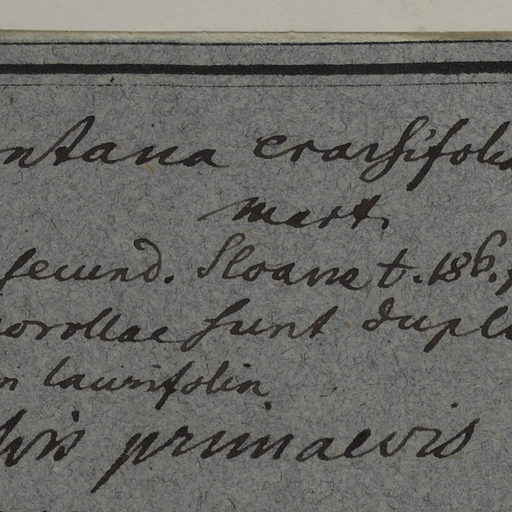 ntana crassifolia
mart.
secund. Sloane t. 186.
corollae sunt dupl
n laurifolia
primaevis